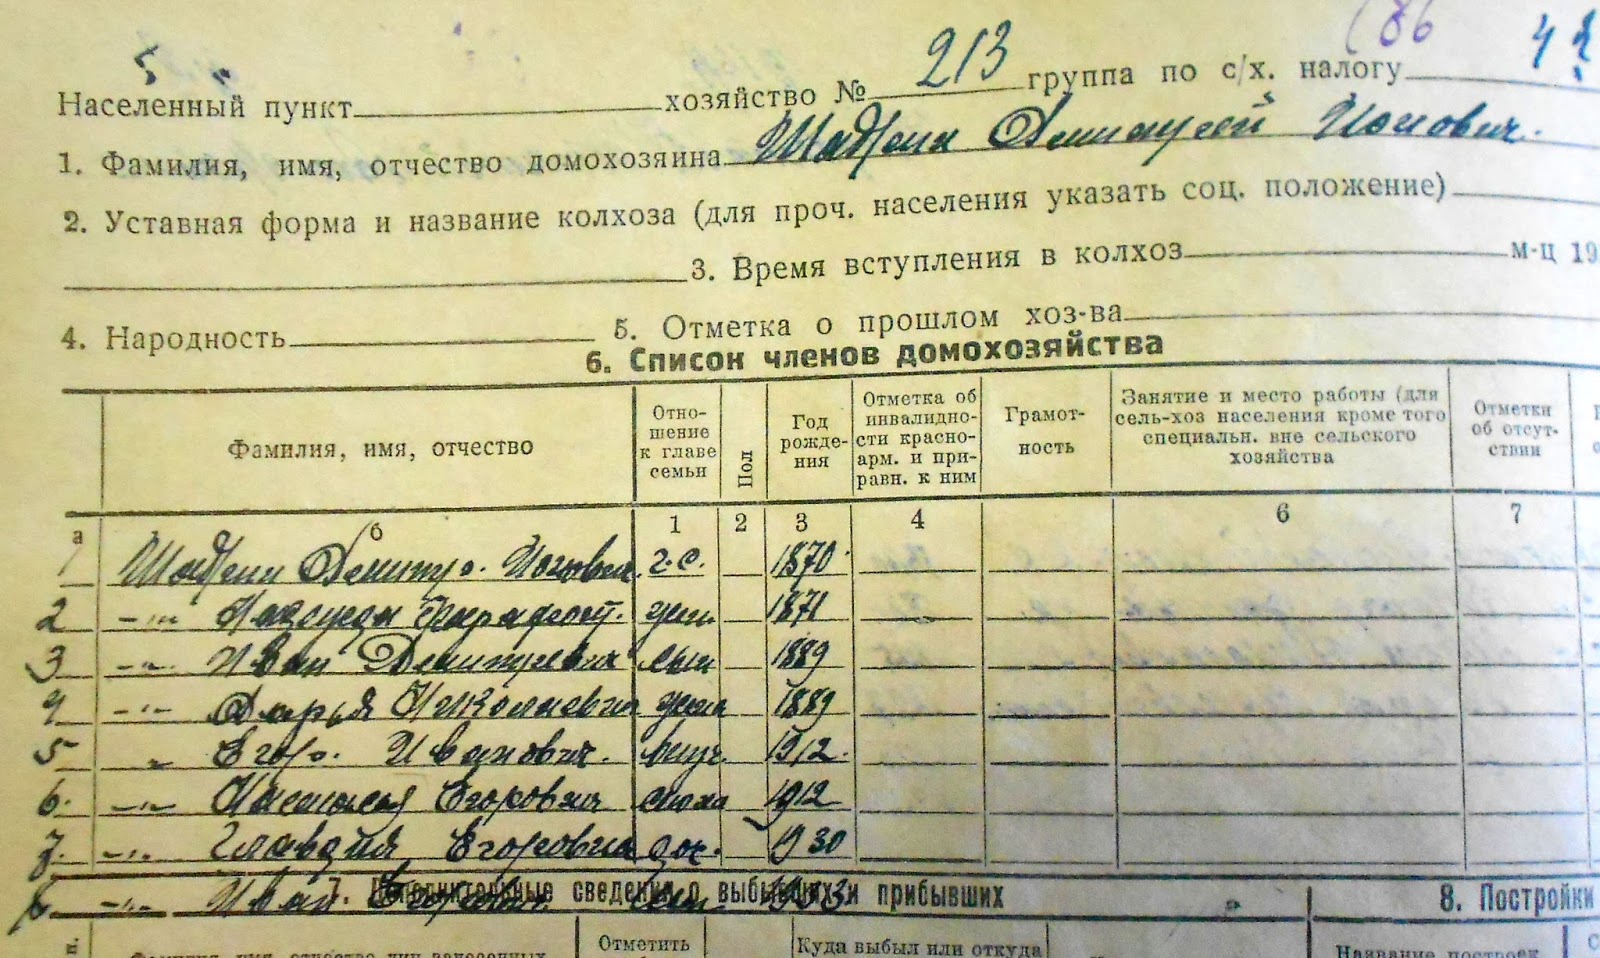 186 42
5
Населенный пункт хозяйство № 213 группа по с/х. налогу
1. Фамилия, имя, отчество домохозяина Дмитрей Ионович.
2. Уставная форма и название колхоза (для проч. населения указать соц. положение)
3. Время вступления в колхоз м-ц 19
4. Народность 5. Отметка о прошлом хоз-ва
6. Список членов домохозяйства
Фамилия, имя, отчество
Отно-
шение
к главе
семьи
Пол
Год
рожде-
ния
Отметка об
инвалидно-
сти красно-
арм. и при-
равн. к ним
Грамот-
ность
Занятие и место работы (для
сель-хоз населения кроме того
специальн. вне сельского
хозяйства
Отметки
об отсут-
ствии
а б 1 2 3 4 6 7
1 Дмитр. Ионович г.с. 1870
2 -"- жен. 1871
3 -"- Иван Дмитревич сын 1889
4 -"- Дарья Николаевна жена 1889
5 " Егор. Иванович. внук. 1912.
6. -"- Настасья Егоровна сноха 1912
7. -"- Клавдия Егоровна доч. 1930
7. Дополнительные сведения о выбывших и прибывших 8. Постройки
8 -"- Иван Егорович сын 1933
Фамилия, имя, отчество лиц, занесенных
Отметить
Куда выбыл или откуда
Название построек